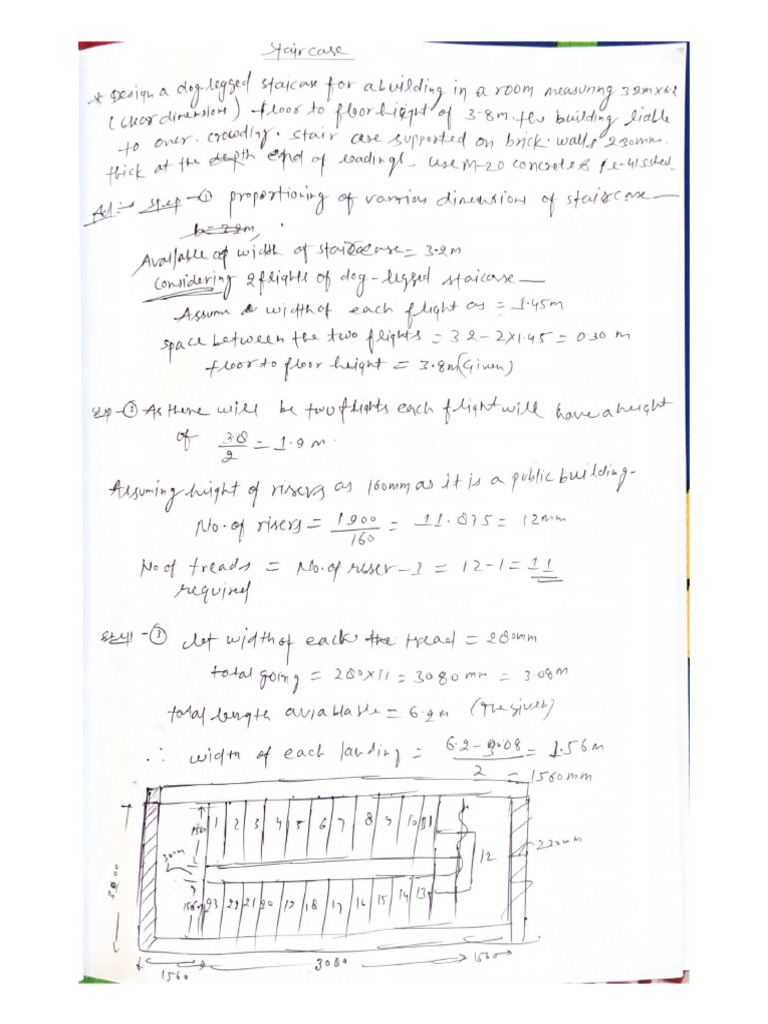 Staircase
* Design a dog legged staicase for a building in a room measuring 3.2m×6.2
(clear dimensions) floor to floor height of 3.8m. the building liable
to over. crowding. stair case supported on brick walls 230mm.
thick at the depth end of loadings. use M-20 concrete &
Step -① proportioning of various dimensions of staircase —
b=3.2m
Available of width of staircase = 3.2m
Considering 2 flights of dog-legged staicase —
Assum width of each flight as = 1.45m
space between the two flights = 3.2-2×1.45 = 0.30 m
floor to floor height = 3.8m (Given)
Step -② As there will be two flights each flight will have a height
of 3.8/2 = 1.9 m.
Assuming height of risers as 160mm as it is a public building-
No. of risers = 1900/160 = 11.875 = 12mm
No of treads = No. of riser -1 = 12-1 = 11
required
-③ let width of each the tread = 280mm
total going = 280×11 = 3080 mm = 3.08m
total length aviabable = 6.2m
∴ width of each landing = 6.2-3.08/2 = 1.56m
= 1560mm
1 2 3 4 5 6 7 8 9 10 11
1560
300m
12
230mm
3200
1560
23 22 21 20 19 18 17 16 15 14 13
1560 3080 1560